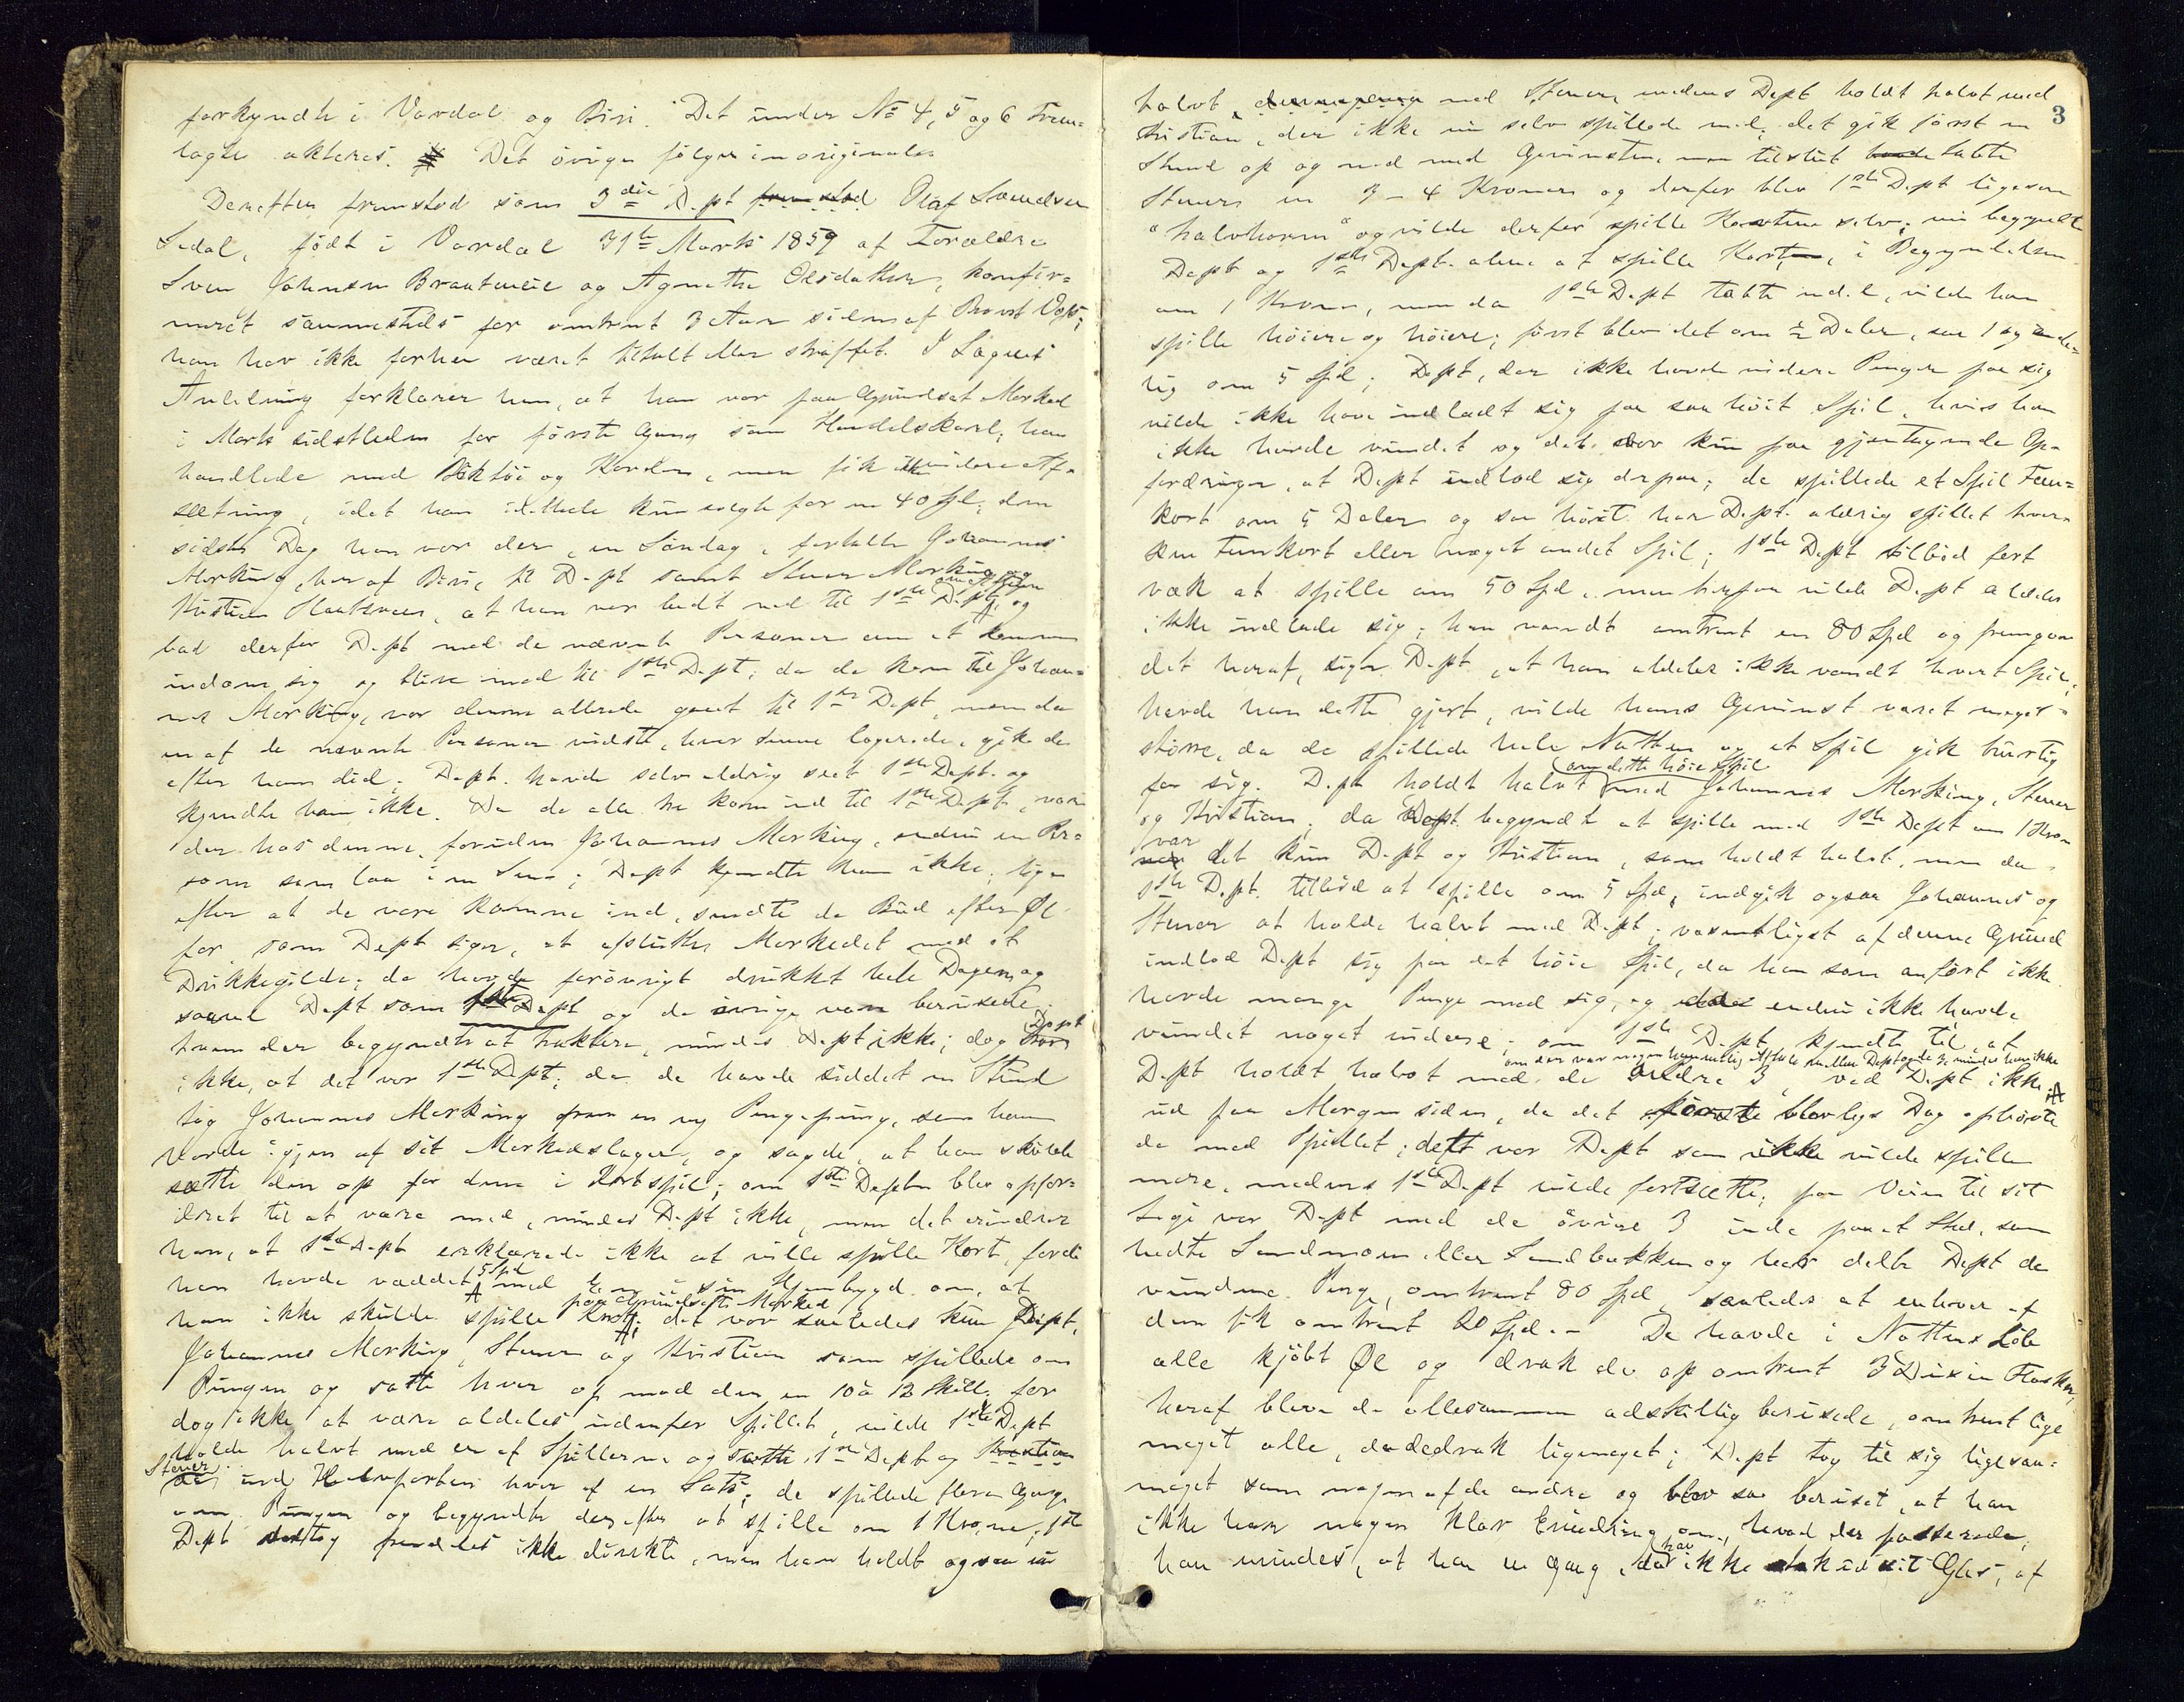 forkyndte i Vardal og Biri. Det under No 4, 5 og 6 Frem-
lagte akteres. Det övrige fölger in originale
Derefter fremstod som 3die Dept fremstod Olaf Svendsen
Sedal, födt i Vardal 31te Marts 1859 af Forældre
Sven Johnsen Brautmeie og Agnethe Olsdatter, konfir-
meret sammesteds for omtrent 3 Aar siden af Provst
han har ikke forhen været tiltalt eller straffet. I Sagens
Anledning forklarer han, at han var paa Grundset Marked
i Marts sidstleden for förste Gang som Handelskarl; han
handlede med og Karder, men fik ikke videre Af-
sætning, idet han idethele kun solgte for en 40 Spd; den
sidste Dag han var der, en Söndag, fortalte Johannes
Morking, her af Biri, til Dept samt Stener Morking og
Kristian, at han var budt ned til 1ste Dept, og
bad derfor Dept med de nævnte Personer om at komme
indom sig og blive med til 1ste Dept; da de kom til Johan-
nes Morking, var denne allerede gaaet til 1ste Dept, men da
en af de nævnte Personer vidste, hvor denne logerede, gik de
efter ham did. Dept. havde selv aldrig seet 1ste Dept. og
kjendte ham ikke. Da de alle tre kom ind til 1ste Dept, var
der hos denne, foruden Johannes Morking, endnu en Per-
son som laa i en Seng; Dept kjendte ham ikke; lige
efter at de vare komne ind, sendte de Bud efter Øl
for, som Dept siger, at afslutte Markedet med et
Drikkegilde; de havde forövrigt drukket hele Dagen, og
saavel Dept som 1ste Dept og de övrige vare berusede;
hvem der begyndte at traktere, mindes Dept ikke; dog tror Dept
ikke, at det var 1ste Dept; da de havde siddet en Stund
tog Johannes Morking frem en ny Pengepung, som han
havde igjen af sit Markedslager, og sagde, at han skulde
sætte den op for dem i Kortspil; om 1ste Depten blev opfor-
dret til at være med, mindes Dept ikke, men det erindrer
han, at 1ste Dept erklærede ikke at ville spille Kort, fordi
han havde væddet 5 Spd med En i sin Hjembygd om, at
han ikke skulde spille Kort paa Grundsetts Marked; det var saaledes kun Dept,
Johannes Morking, Stener og Kristian som spillede om
Pungen og satte hver op mod den en 10 à 12 Skill. for
dog ikke at være aldeles udenfor Spillet, vilde 1ste Dept
holde halvt med en af Spillerne og satte 1ste Dept og Kristian
Stener ind Halvparten hver af en Sats; de spillede flere Gange
om Pungen og begyndte derefter at spille om 1 Krone; 1ste
Dept deltog fremdeles ikke direkte, men han holdt ogsaa nu
3
halvt med Stener, medens Dept holdt halvt med
Kristian, der ikke nu selv spillede med; det gik först en
Stund op og ned med Gevinsten, men tilslut havde tabte
Stener en 3 – 4 Kroner og derfor blev 1ste Dept ligesom
"halvharm" og vilde derfor spille Kortene selv; nu begyndte
Dept og 1ste Dept. alene at spille Kort, i Begyndelsen
om 1 Krone, men da 1ste Dept tabte ned.l, vilde han
spille höiere og höiere; först blev det om ½ Daler, saa 1 og ende-
lig om 5 Spd; Dept, der ikke havde videre Penger paa sig
vilde ikke have indladt sig paa saa höit Spil, hvis han
ikke havde vundet og det. var kun paa gjentagende Op-
fordringer, at Dept indlod sig derpaa; de spillede et Spil Fem-
kort om 5 Daler og saa höit har Dept. aldrig spillet hver-
ken Femkort eller noget andet Spil; 1ste Dept tilböd fort
væk at spille om 50 Spd, men herpaa vilde Dept aldeles
ikke indlade sig; han vandt omtrent en 80 Spd og fremgaar
det heraf, siger Dept, at han aldeles ikke vandt hvert Spil;
havde han dette gjort, vilde hans Gevinst været meget
större, da de spillede hele Natten og et Spil gik hurtig
for sig. Dept holdt halvt (om dette höie Spil) med Johannes Morking, Stener
og Kristian; da Dept. begyndte at spille med 1ste Dept om 1 Krone
var det kun Dept og Kristian, som holdt halvt, men da
1ste Dept. tilböd at spille om 5 Spd, indgik ogsaa Johannes og
Stener at holde halvt med Dept; væsentligst af denne Grund
indlod Dept sig paa det höie Spil, da han som anfört ikke
havde mange Penge med sig, og endnu ikke havde
vundet noget videre; om 1ste Dept kjendte til, at
om der var nogen hemmelig Aftale mellem Dept og de 3, mindes han ikke
Dept holdt halvt med de andre 3, ved Dept ikke;
ud paa Morgensiden, da det förste blev lys Dag ophörte
de med Spillet; det var Dept som ikke vilde spille
mere, medens 1ste Dept vilde fortsætte; paa Veien til sit
Logi var Dept med de övrige 3 inde paa et Sted, som
hedte Sandmoen eller Sandbakken og her delte Dept de
vundne Penge, omtrent 80 Spd, saaledes at enhver af
dem fik omtrent 20 Spd. – De havde i Nattens Löb
alle kjöbt Øl og drak de op omtrent 3 Dusin Flasker,
heraf bleve de allesammen adskillig berusede, omtrent lige
meget alle, da de drak ligemeget; Dept tog til sig ligesaa-
meget som nogen af de andre og blev saa beruset, at han
ikke har nogen klar Erindring om, hvad der passerede;
han mindes, at han en Gang, da han ikke drak ud sit Glas, af